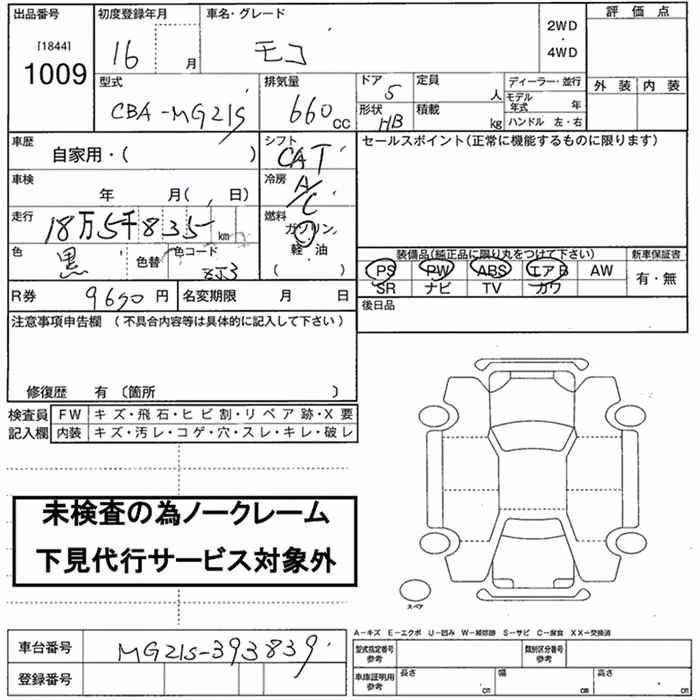 出品番号 [1844] 1009
初度登録年月 16 月
車名・グレード モコ
2WD・4WD
評価点
外装 内装
型式 CBA-MG21S
排気量 660 CC
ドア 5
形状 HB
定員 人
積載 kg
ディーラー・並行
モデル年式 年
ハンドル 左・右
車歴 自家用・( )
シフト CAT
セールスポイント(正常に機能するものに限ります)
車検 年 月( 日)
冷房 A/C
走行 18万5千835 km
燃料 ガソリン 軽・油 ( )
色 黒 色替 色コード ZJ3
装備品(純正品に限り丸をつけて下さい) 新車保証書
PS PW ABS エアB AW 有・無
SR ナビ TV カワ
R券 9690 円 名変期限 月 日
後日品
注意事項申告欄 (不具合内容等は具体的に記入して下さい)
修復歴 有 (箇所 )
検査員 FW キズ・飛石・ヒビ割・リペア跡・X要
記入欄 内装 キズ・汚レ・コゲ・穴・スレ・キレ・破レ
未検査の為ノークレーム
下見代行サービス対象外
スペア
A-キズ E-エクボ U-凹み W-補修跡 S-サビ C-腐食 XX-交換済
車台番号 MG21S-393839
登録番号
型式指定番号 参考 類別区分番号 参考
車庫証明用 参考 長さ cm 幅 cm 高さ cm